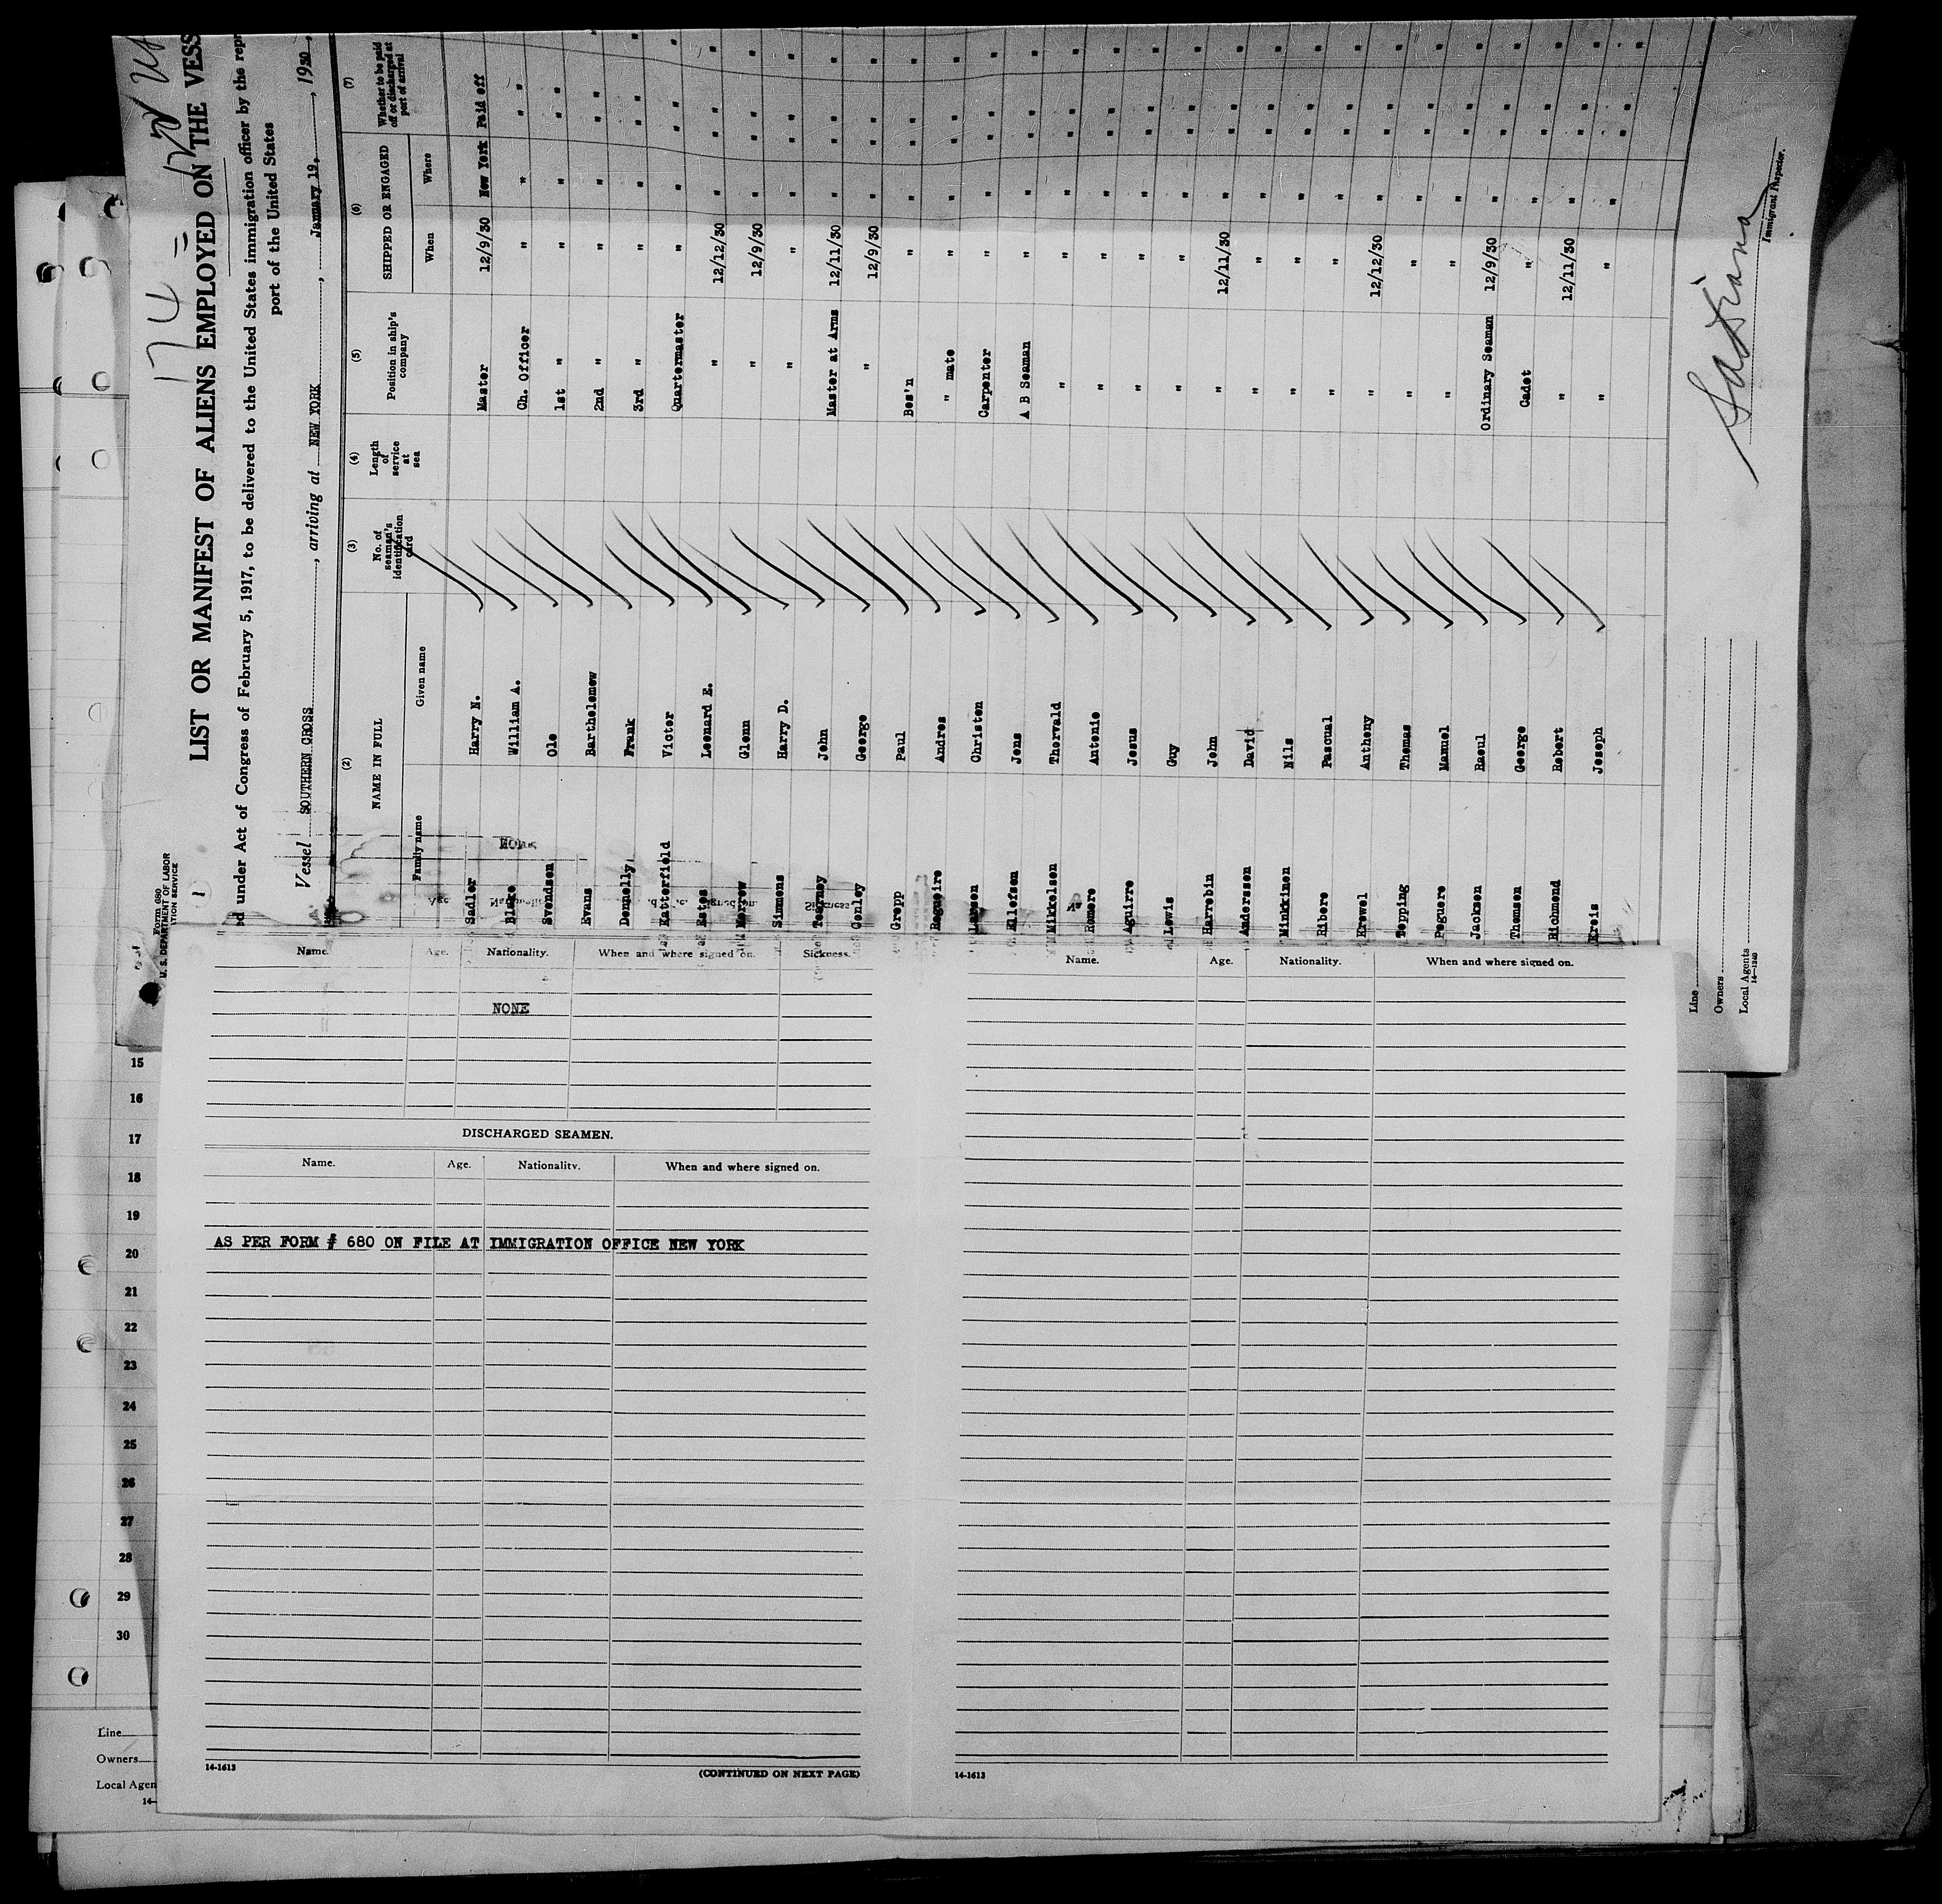 174
LIST OR MANIFEST OF ALIENS EMPLOYED ON THE VESS
ed under Act of Congress of February 5, 1917, to be delivered to the United States immigration officer by the repr
port of the United States
Form 680
U. S. DEPARTMENT OF LABOR
Vessel SOUTHERN CROSS, arriving at NEW YORK, January 19, 1930,
(2) (3) (4) (5) (6) (7)
NAME IN FULL No. of seaman's identification card Length of service at sea Position in ship's company SHIPPED OR ENGAGED Whether to be paid off or discharged at port of arrival
Family name Given name When Where
Sadler Harry N. Master 12/9/30 New York Paid off
Blake William A. Ch. Officer " " " "
Svendsen Ole 1st " " " " "
Evans Barthelemew 2nd " " " " "
Dennelly Frank 3rd " " " " "
Katterfield Victor Quartermaster " " " "
Estes Leenard E. " 12/12/30 " " "
Merrew Glenn " 12/9/30 " " "
Simmens Harry D. " " " " "
Tearney Jehn Master at Arms 12/11/30 " " "
Cenley Geerge " 12/9/30 " " "
Grepp Paul Bes'n " " " "
Regueire Andres " mate " " " "
Larsen Christen Carpenter " " " "
Ellefsen Jens A B Seaman " " " "
Mikkelsen Thervald " " " " "
Romere Antenie " " " " "
Aguirre Jesus " " " " "
Lewis Guy " " " " "
Harrebin Jehn " 12/11/30 " " "
Anderssen David " " " " "
Minkkinen Nils " " " " "
Ribere Pascual " " " " "
Krewel Antheny " 12/12/30 " " "
Tepping Themas " " " " "
Peguere Manuel " " " " "
Jacksen Raeul Ordinary Seaman 12/9/30 " " "
Themsen Geerge Cadet " " " "
Richmend Rebert " 12/11/30 " " "
Kreis Jeseph " " " " "
Line
Owners
Local Agents
14—1240
Immigrant Inspector.
Name. Age. Nationality. When and where signed on. Sickness.
NONE
DISCHARGED SEAMEN.
Name. Age. Nationality. When and where signed on.
AS PER FORM # 680 ON FILE AT IMMIGRATION OFFICE NEW YORK
14-1613
(CONTINUED ON NEXT PAGE)
Name. Age. Nationality. When and where signed on.
14-1613
15
16
17
18
19
20
21
22
23
24
25
26
27
28
29
30
Line
Owners
Local Agen
14—